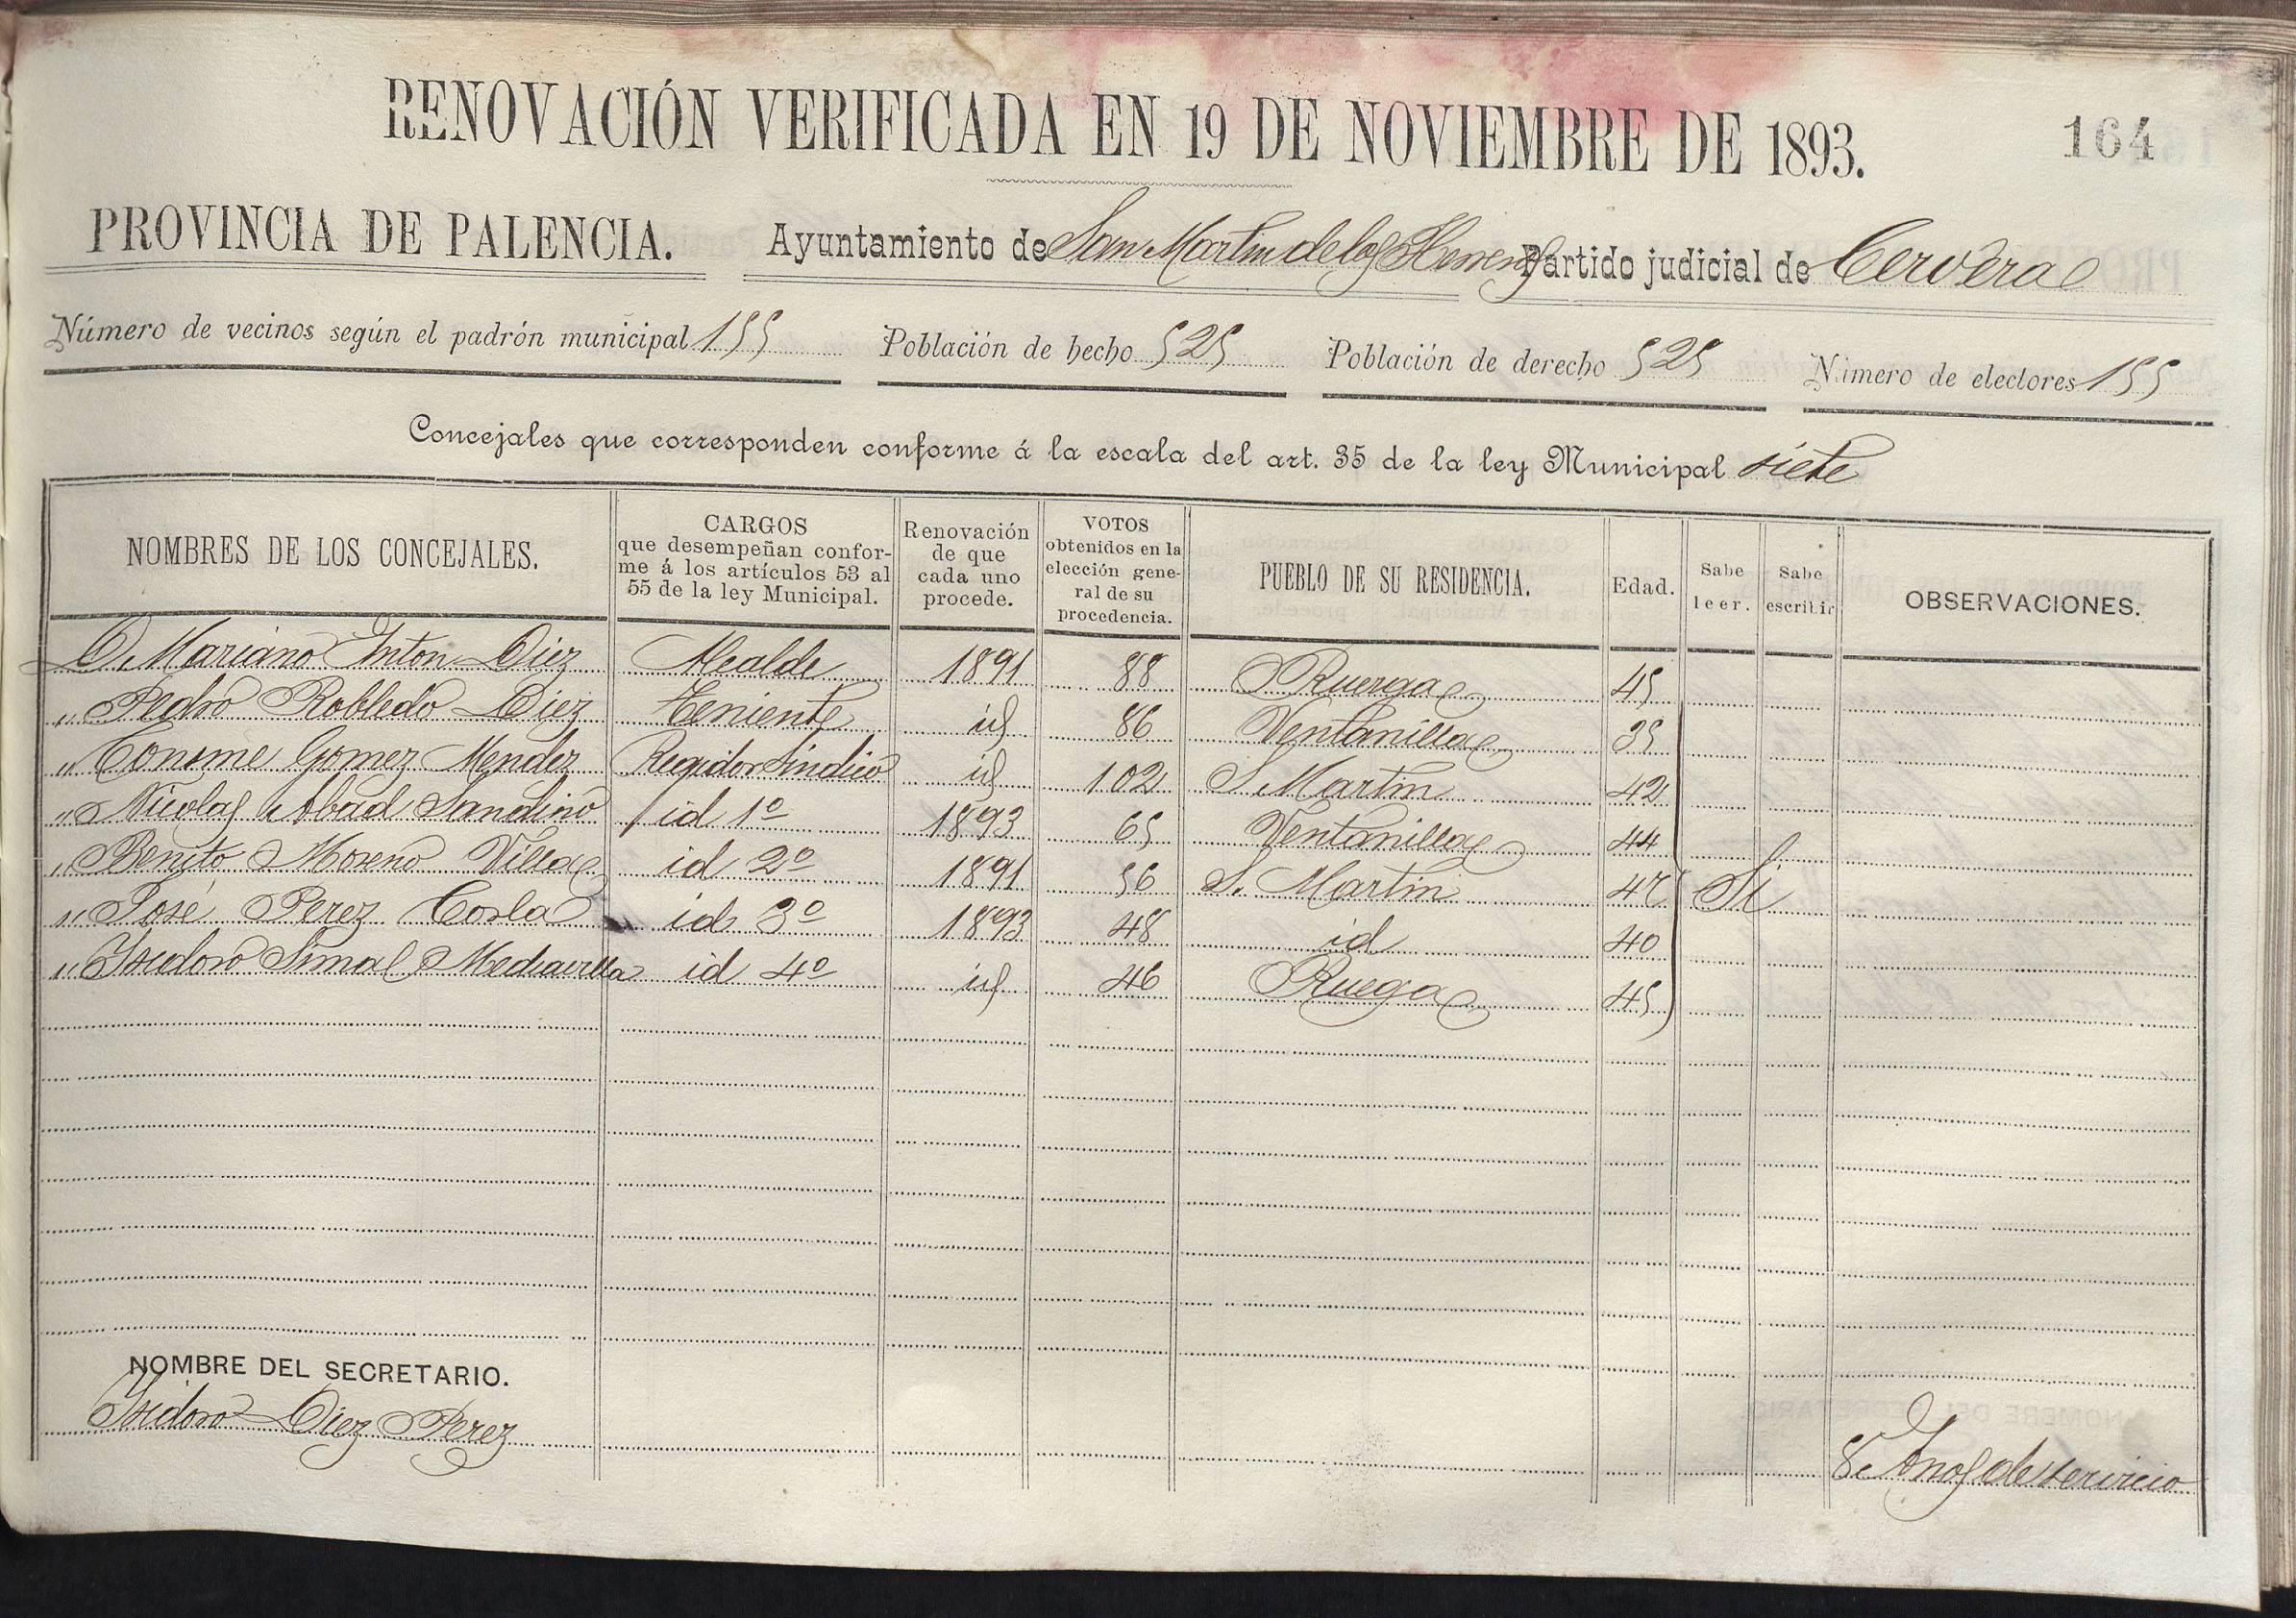 RENOVACIÓN VERIFICADA EN 19 DE NOVIEMBRE DE 1893.
164
PROVINCIA DE PALENCIA. Ayuntamiento de San Martin de los Herreros Partido judicial de Cervera
Número de vecinos según el padrón municipal 155 Población de hecho 525 Población de derecho 525 Número de electores 155
Concejales que corresponden conforme á la escala del art. 35 de la ley Municipal siete
NOMBRES DE LOS CONCEJALES.
CARGOS
que desempeñan confor-
me á los artículos 53 al
55 de la ley Municipal.
Renovación
de que
cada uno
procede.
VOTOS
obtenidos en la
elección gene-
ral de su
procedencia.
PUEBLO DE SU RESIDENCIA.
Edad.
Sabe
leer.
Sabe
escribir
OBSERVACIONES.
D. Mariano Anton Diez Alcalde 1891 88 Ruerga 45
" Pedro Robledo Diez Teniente id 86 Ventanilla 35
" Gomez Mendez Regidor Sindico id 102 S Martin 42
" Nicolas Abad Sandino id 1º 1893 65 Ventanilla 44
" Benito Moreno Villa id 2º 1891 56 S. Martin 47 Si
" José Perez id 3º 1893 48 id 40
" Isidoro Simal Mediavilla id 4º id 46 Ruega 45
NOMBRE DEL SECRETARIO.
Isidoro Diez Perez
8 Años de servicio